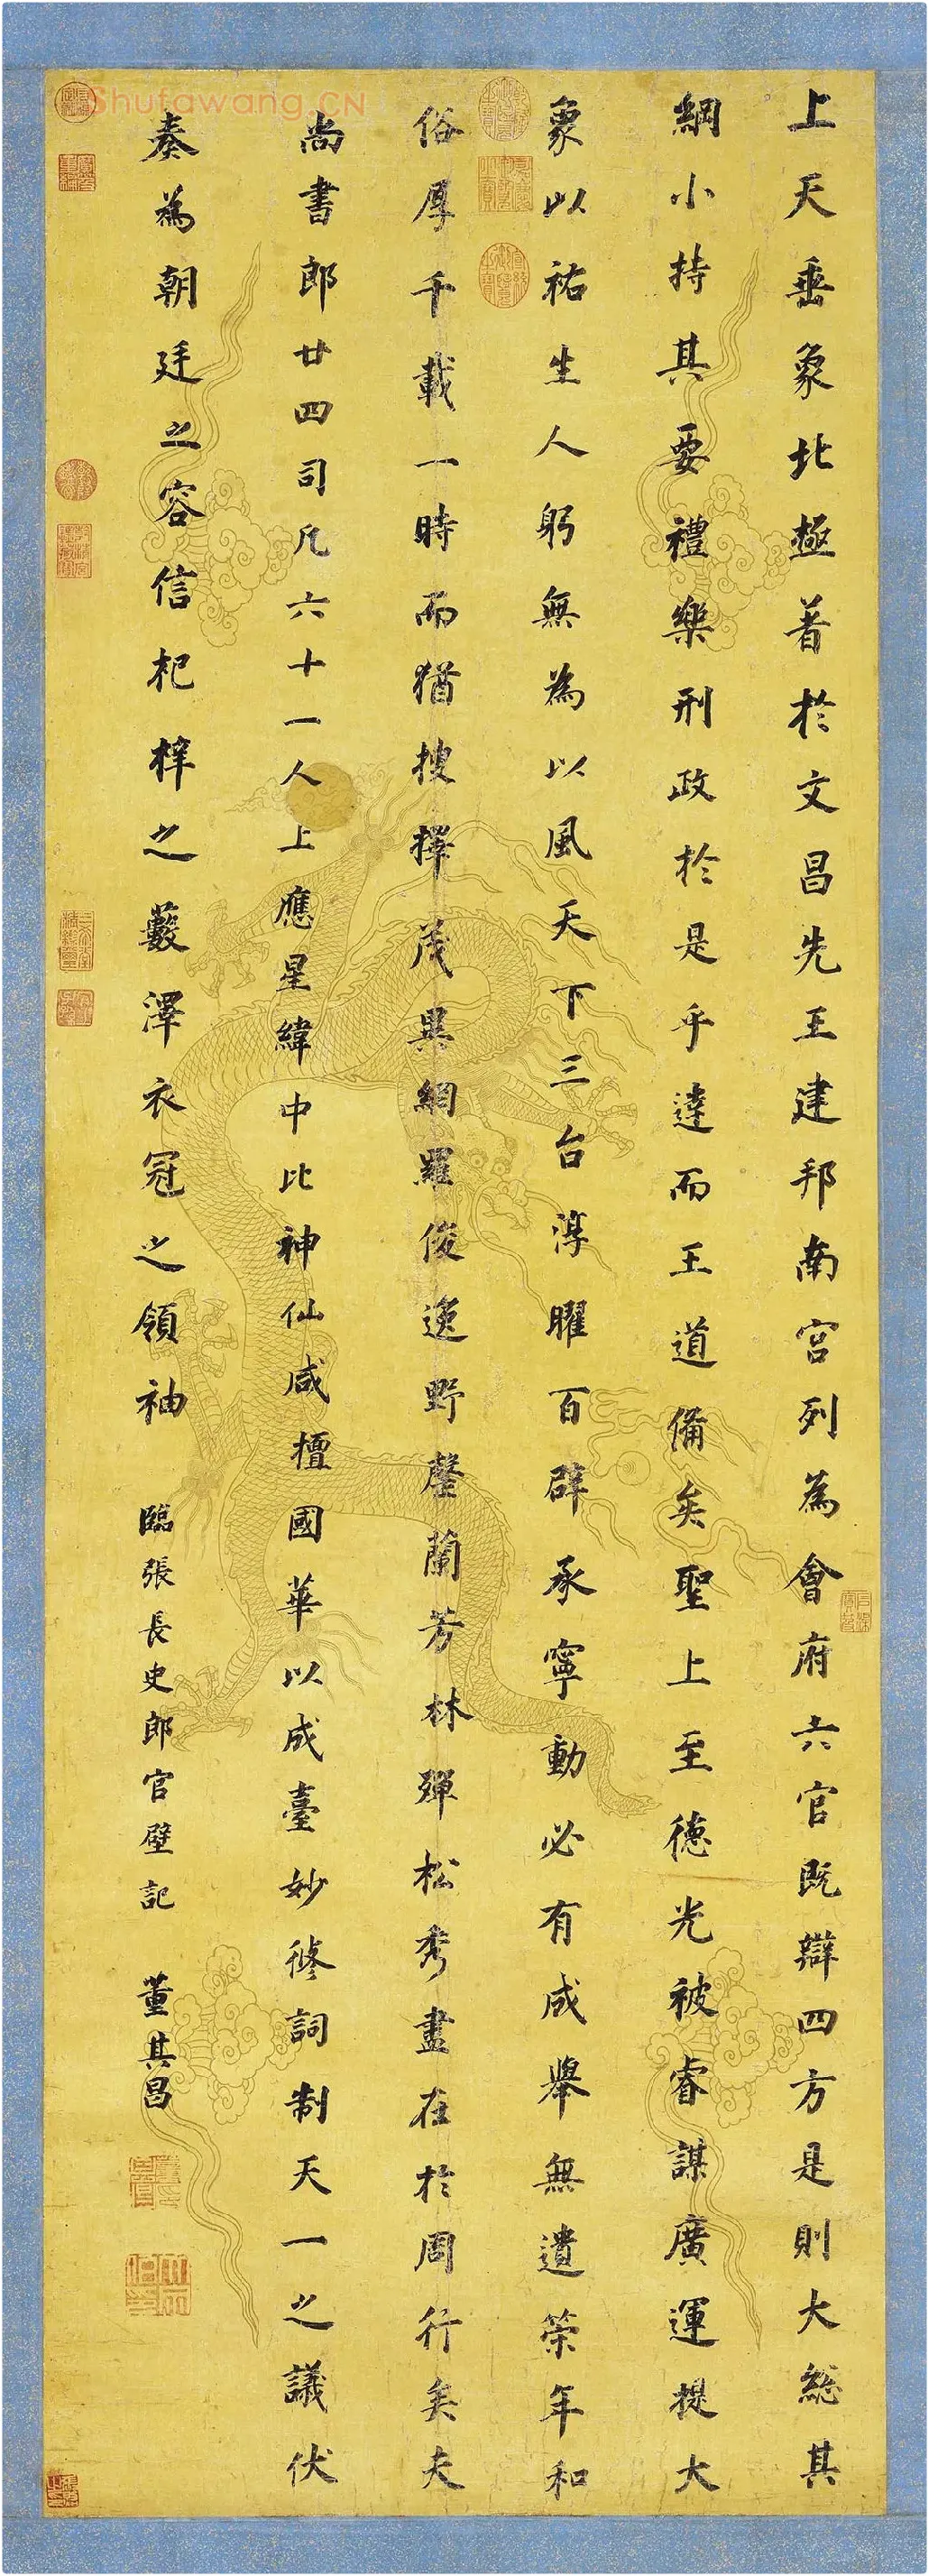 上天垂象北極著於文昌先王建邦南宮列為會府六官既辯四方是則大總其
綱小持其要禮樂刑政於是乎達而王道備矣聖上至德光被睿謀廣運提大
象以祐生人躬無為以風天下三台淳曜百辟承寧動必有成舉無遺策年和
俗厚千載一時而猶搜擇茂異網羅俊逸野罄蘭芳林殫松秀盡在於周行矣夫
尚書郎廿四司凡六十一人上應星緯中比神仙咸擅國華以成臺妙修詞制天一之議伏
奏為朝廷之容信杞梓之藪澤衣冠之領袖 臨張長史郎官壁記 董其昌
Shufawang.CN